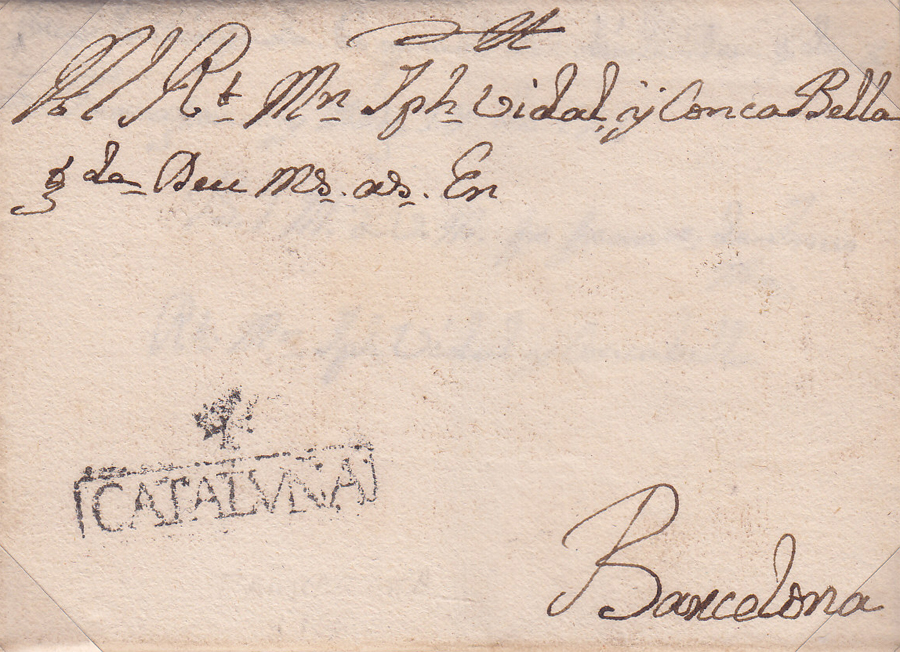 Al Rt Mn Jph Vidal, y Conca Bella
g de Deu Ms. as. En
CATALVÑA
Barcelona